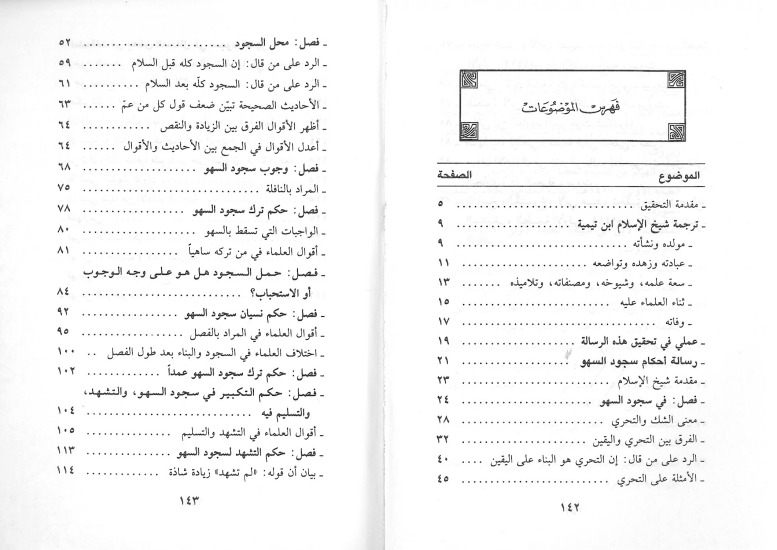 فهرس الموضوعات
الموضوع الصفحة
ـ مقدمة التحقيق ٥
ـ ترجمة شيخ الإسلام ابن تيمية ٩
ـ مولده ونشأته ٩
ـ عبادته وزهده وتواضعه ١١
ـ سعة علمه، وشيوخه، ومصنفاته، وتلاميذه ١٣
ـ ثناء العلماء عليه ١٥
ـ وفاته ١٧
ـ عملي في تحقيق هذه الرسالة ١٩
ـ رسالة أحكام سجود السهو ٢١
ـ مقدمة شيخ الإسلام ٢٣
ـ فصل: في سجود السهو ٢٤
ـ معنى الشك والتحري ٢٨
ـ الفرق بين التحري واليقين ٣٢
ـ الرد على من قال: إن التحري هو البناء على اليقين ٤٠
ـ الأمثلة على التحري ٤٥
١٤٢
ـ فصل: محل السجود ٥٢
ـ الرد على من قال: إن السجود كله قبل السلام ٥٩
ـ الرد على من قال: السجود كلّه بعد السلام ٦١
ـ الأحاديث الصحيحة تبيّن ضعف قول كل من عمّ ٦٣
ـ أظهر الأقوال الفرق بين الزيادة والنقص ٦٤
ـ أعدل الأقوال في الجمع بين الأحاديث والأقوال ٦٤
ـ فصل: وجوب سجود السهو ٦٨
ـ المراد بالنافلة ٧٥
ـ فصل: حكم ترك سجود السهو ٧٨
ـ الواجبات التي تسقط بالسهو ٨٠
ـ أقوال العلماء في من تركه ساهياً ٨١
ـ فصل: حمل السجود هل هو على وجه الوجوب
أو الاستحباب؟ ٨٤
ـ فصل: حكم نسيان سجود السهو ٩٢
ـ أقوال العلماء في المراد بالفصل ٩٥
ـ اختلاف العلماء في السجود والبناء بعد طول الفصل ١٠٠
ـ فصل: حكم ترك سجود السهو عمداً ١٠٢
ـ فصل: حكم التكبير في سجود السهو، والتشهد،
والتسليم فيه ١٠٤
ـ أقوال العلماء في التشهد والتسليم ١٠٥
ـ فصل: حكم التشهد لسجود السهو ١١٣
ـ بيان أن قوله: «لم تشهد» زيادة شاذة ١١٤
١٤٣